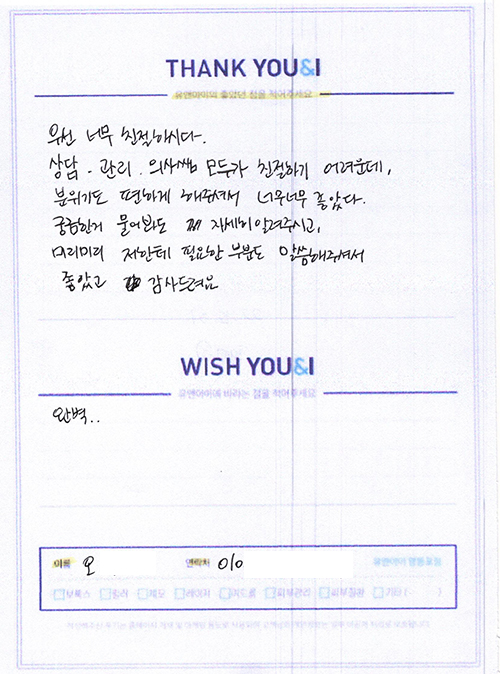 THANK YOU&I
유앤아이의 좋았던 점을 적어주세요
우선 너무 친절하시다.
상담. 관리. 의사쌤 모두가 친절하기 어려운데,
분위기도 편하게 해주셔서 너무너무 좋았다.
궁금한거 물어봐도 자세히 알려주시고,
미리미리 저한테 필요한 부분도 말씀해주셔서
좋았고 감사드려요
WISH YOU&I
유앤아이에 바라는 점을 적어주세요
완벽..
이름 오 연락처 010
보톡스 필러 제모 레이저 여드름 피부관리 피부질환 기타 ( )